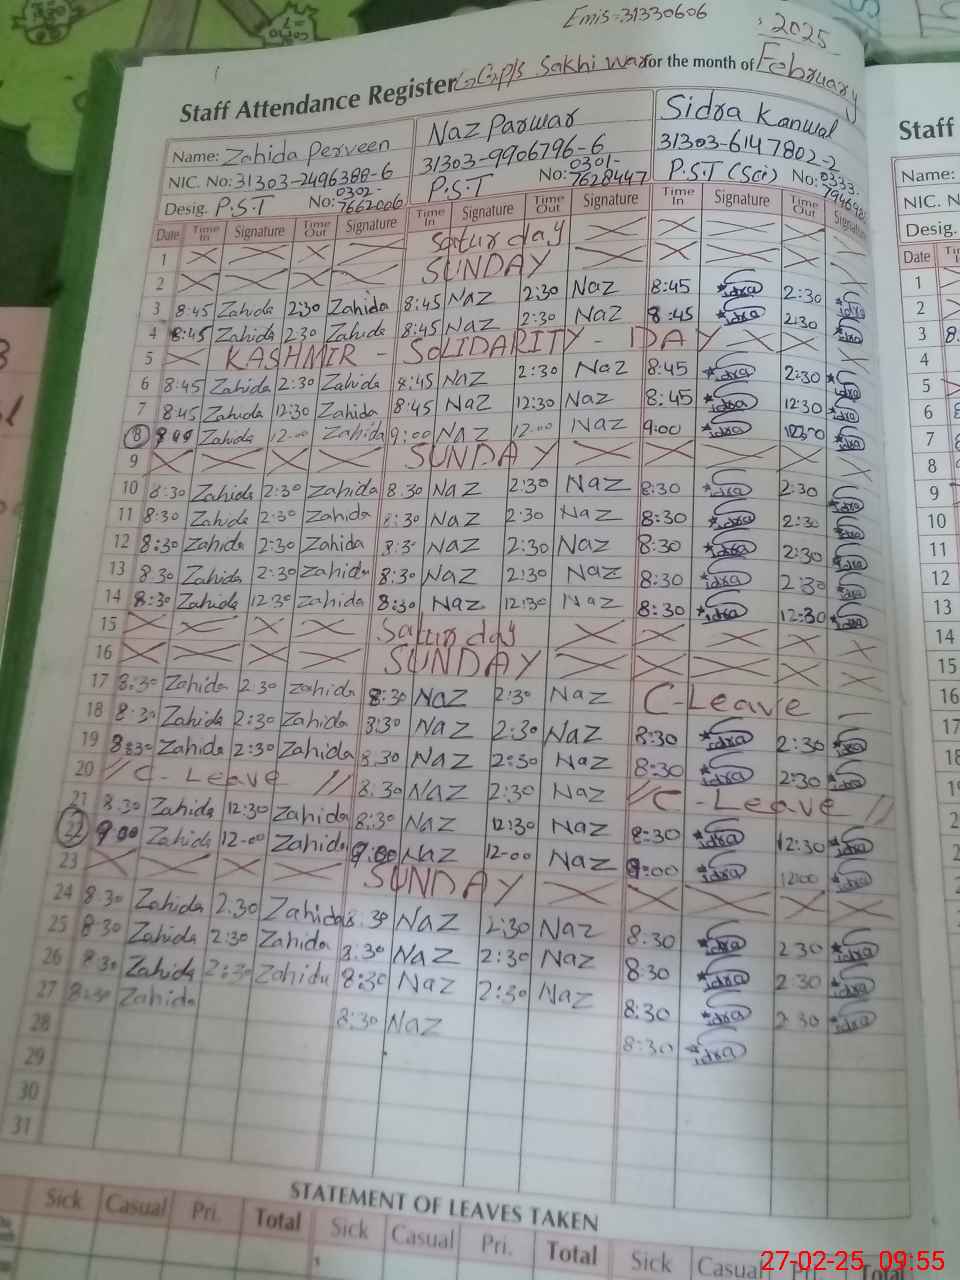 Emis=31330606
2025
Staff Attendance Register G.G.P/S Sakhi War for the month of February
Name: Zahida Perveen Naz Parwar Sidra Kanwal
NIC. No: 31303-2496388-6 31303-9906796-6 31303-6147802-2
Desig. P.S.T No: 0302-7662006 P.S.T No: 0301-7628447 P.S.T (Sci) No: 0333-
Date Time In Signature Time Out Signature Time In Signature Time Out Signature Time In Signature Time Out Signature
1 Saturday
2 SUNDAY
3 8:45 Zahida 2:30 Zahida 8:45 Naz 2:30 Naz 8:45 idra 2:30 idra
4 8:45 Zahida 2:30 Zahida 8:45 Naz 2:30 Naz 8:45 idra 2:30 idra
5 KASHMIR - SOLIDARITY - DAY
6 8:45 Zahida 2:30 Zahida 8:45 Naz 2:30 Naz 8:45 idra 2:30 idra
7 8:45 Zahida 12:30 Zahida 8:45 Naz 12:30 Naz 8:45 idra 12:30 idra
8 Zahida 12-00 Zahida 9:00 Naz 12-00 Naz 9:00 idra idra
9 SUNDAY
10 8:30 Zahida 2:30 Zahida 8:30 Naz 2:30 Naz 8:30 idra 2:30 idra
11 8:30 Zahida 2:30 Zahida 8:30 Naz 2:30 Naz 8:30 idra 2:30 idra
12 8:30 Zahida 2:30 Zahida 8:30 Naz 2:30 Naz 8:30 idra 2:30 idra
13 8:30 Zahida 2:30 Zahida 8:30 Naz 2:30 Naz 8:30 idra 2:30 idra
14 8:30 Zahida 12:30 Zahida 8:30 Naz 12:30 Naz 8:30 idra 12:30 idra
15 Saturday
16 SUNDAY
17 8:30 Zahida 2:30 Zahida 8:30 Naz 2:30 Naz C-Leave
18 8:30 Zahida 2:30 Zahida 8:30 Naz 2:30 Naz 8:30 idra 2:30 idra
19 8:30 Zahida 2:30 Zahida 8:30 Naz 2:30 Naz 8:30 idra 2:30 idra
20 // C - Leave // 8:30 Naz 2:30 Naz // C - Leave //
21 8:30 Zahida 12:30 Zahida 8:30 Naz 12:30 Naz 8:30 idra 12:30 idra
22 9:00 Zahida 12-00 Zahida 9:00 Naz 12-00 Naz 9:00 idra 12:00 idra
23 SUNDAY
24 8:30 Zahida 2:30 Zahida 8:30 Naz 2:30 Naz 8:30 idra 2:30 idra
25 8:30 Zahida 2:30 Zahida 8:30 Naz 2:30 Naz 8:30 idra 2:30 idra
26 8:30 Zahida 2:30 Zahida 8:30 Naz 2:30 Naz 8:30 idra 2:30 idra
27 8:30 Zahida 8:30 Naz 8:30 idra
28
29
30
31
STATEMENT OF LEAVES TAKEN
Sick Casual Pri. Total Sick Casual Pri. Total Sick Casual Total
Staff
Name:
NIC. No
Desig.
Date
1
2
3 8.
4
5
6
7
8
9
10
11
12
13
14
15
16
17
18
27-02-25 09:55